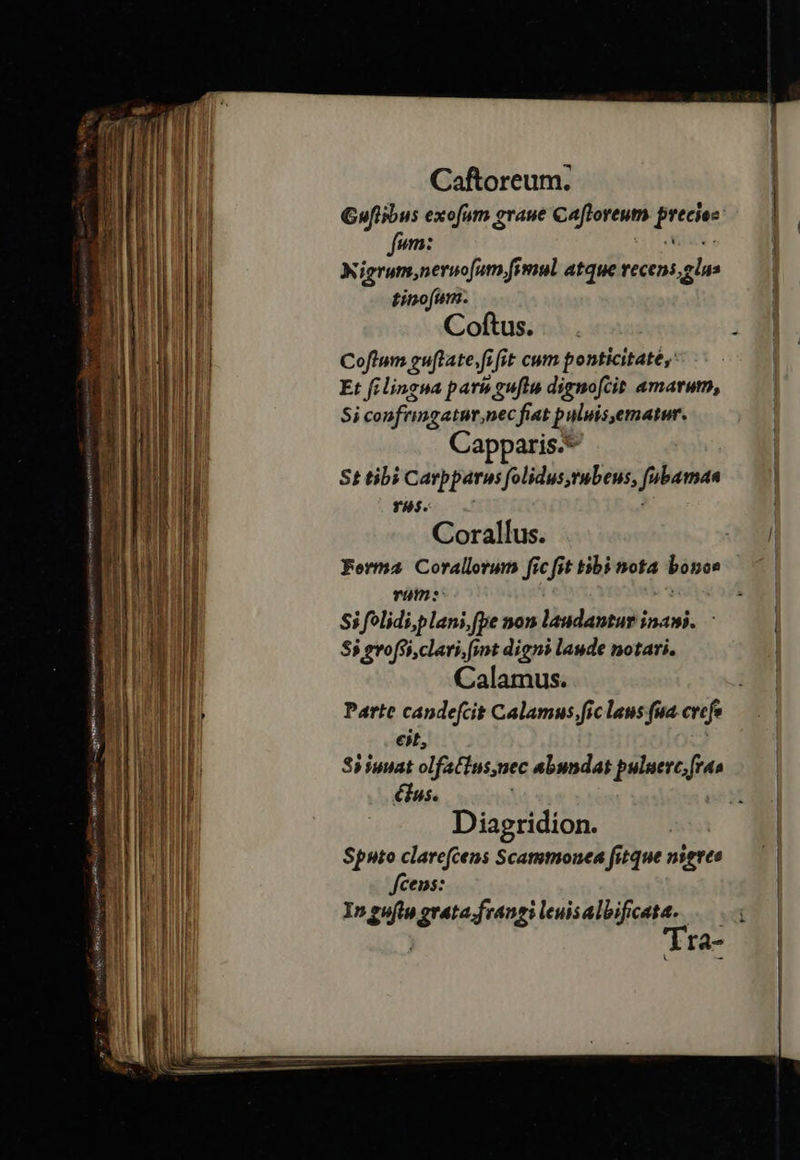 Caſtoreum.
Guſtibus exoſum graue Caſtoreum precio⸗
ſum:
Nigrum,neruoſum,ſimul atque recens,glu⸗
tinoſum.
Coſtus.
Coſtum guſtate,ſi ſit cum ponticitate,
Et ſi lingua parũ guſtu dignoſcit amarum,
Si confringatur,nec fiat puluis,ematur.
Capparis.
St tibi Carpparus ſolidus,rubeus, ſubama⸗
rus.
Corallus.
Forma Corallorum ſic ſit tibi nota bono⸗
rum:
Si ſolidi,plani,ſpe non laudantur inani.
Si groſſi,clari,ſint digni laude notari.
Calamus.
Parte candeſcit Calamus,ſic laus ſua creſ⸗
cit,
Si iuuat olfactus,nec abundat puluere,fra⸗
ctus.
Diagridion.
Sputo clareſcens Scammonea ſitque nigre⸗
ſcens:
In guſtu grata,frangi leuis albificata.
Tra-